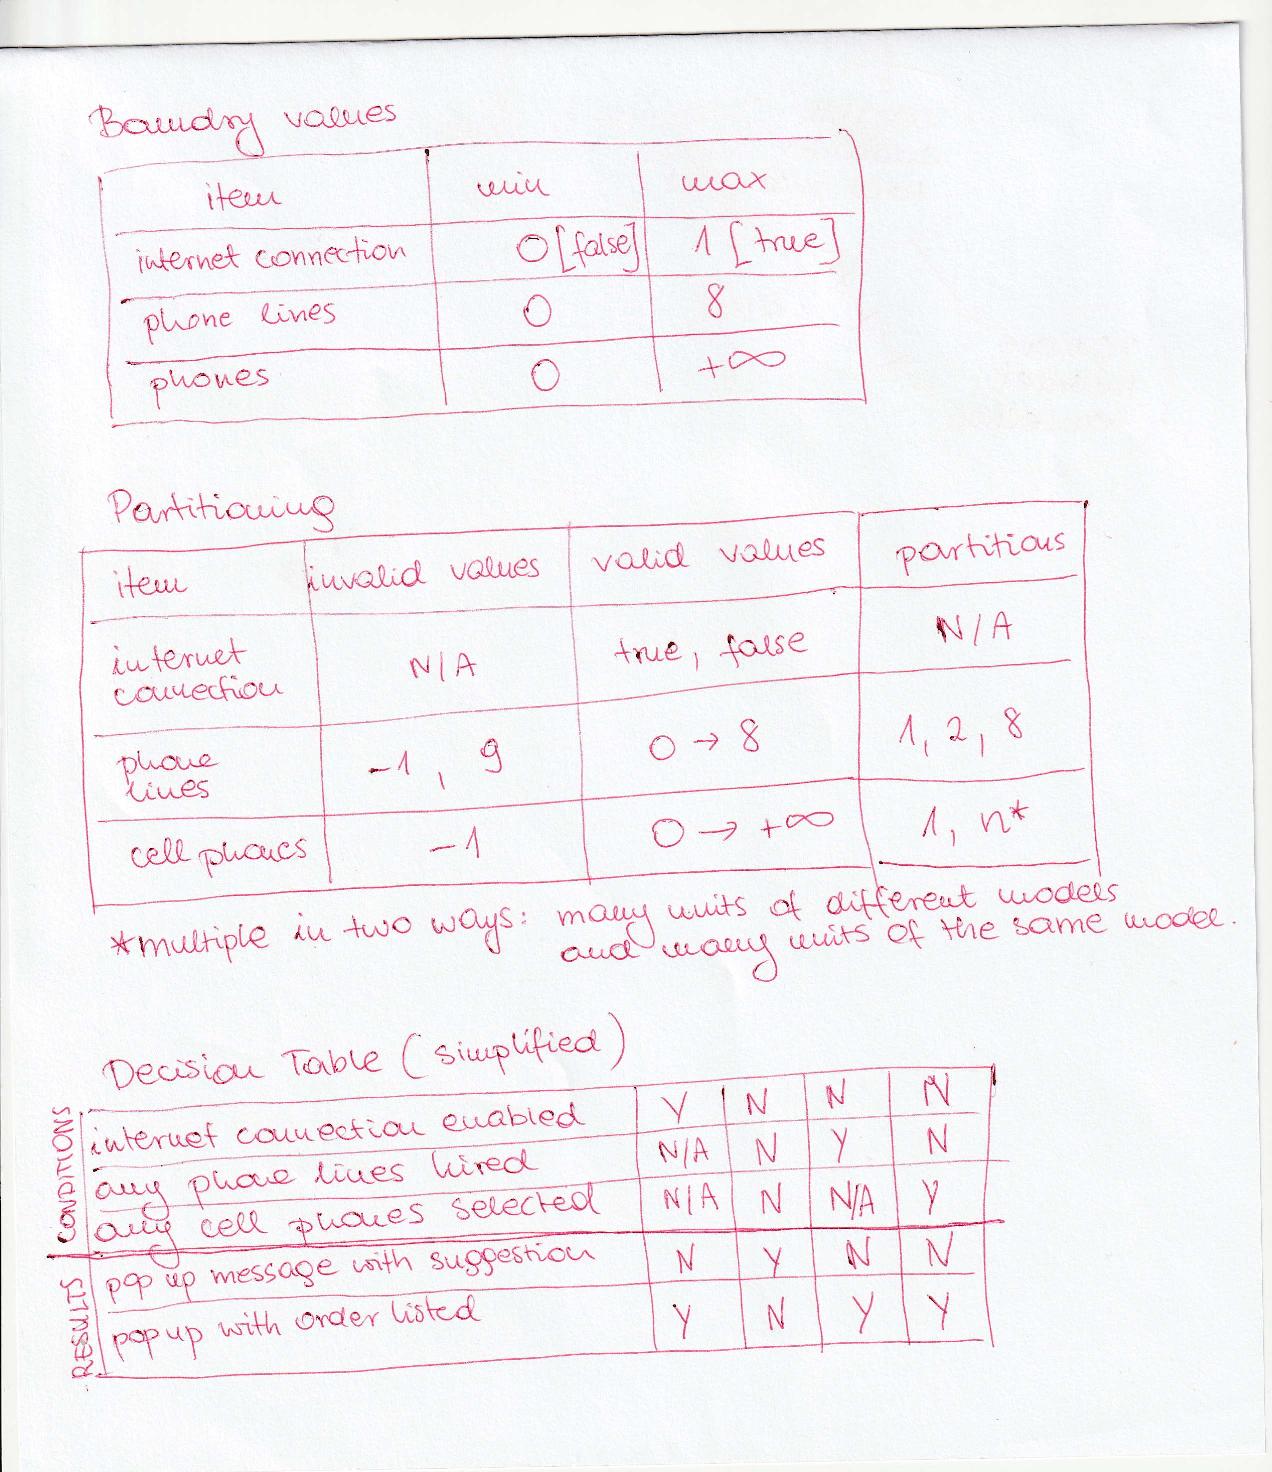 Boundry values
item min max
internet connection 0 [false] 1 [true]
phone lines 0 8
phones 0 +∞
Partitioning
item invalid values valid values partitions
internet
connection N/A true, false N/A
phone
lines -1, 9 0 → 8 1, 2, 8
cell phones -1 0 → +∞ 1, n*
*multiple in two ways: many units of different models
and many units of the same model.
Decision Table (simplified)
CONDITIONS
internet connection enabled Y N N N
any phone lines hired N/A N Y N
any cell phones selected N/A N N/A Y
RESULTS
pop up message with suggestion N Y N N
pop up with order listed Y N Y Y